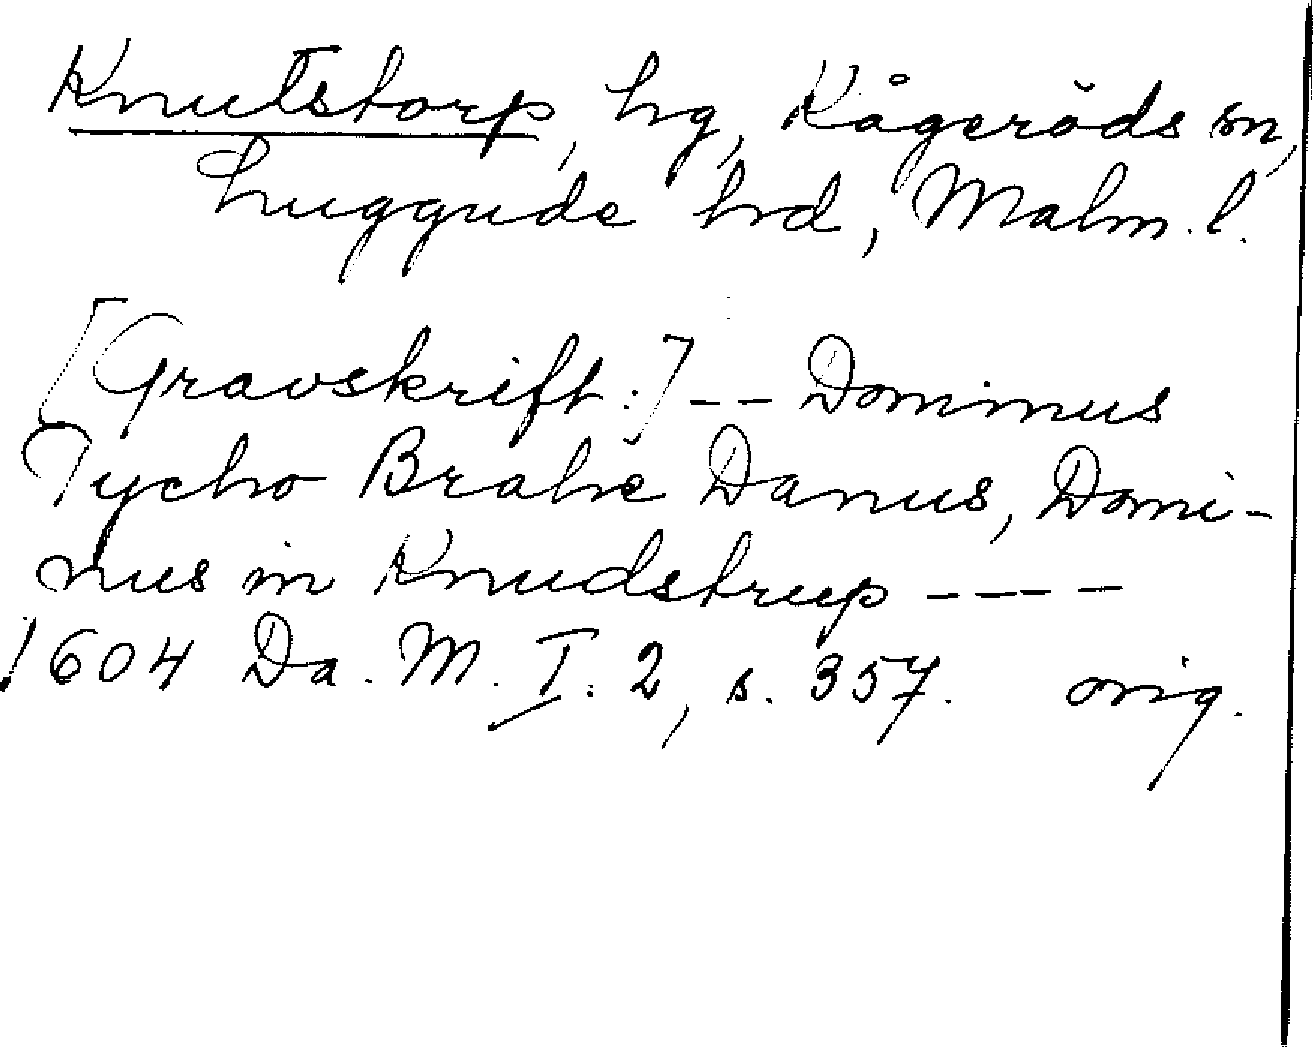 Knutstorp, hg, Kågeröds sn,
Luggude hd, Malm. l.
[Gravskrift:] -- Dominus
Tycho Brahe Danus, Domi-
nus in Knudstrup ----
1604 Da. M. I. 2, s. 357. orig.